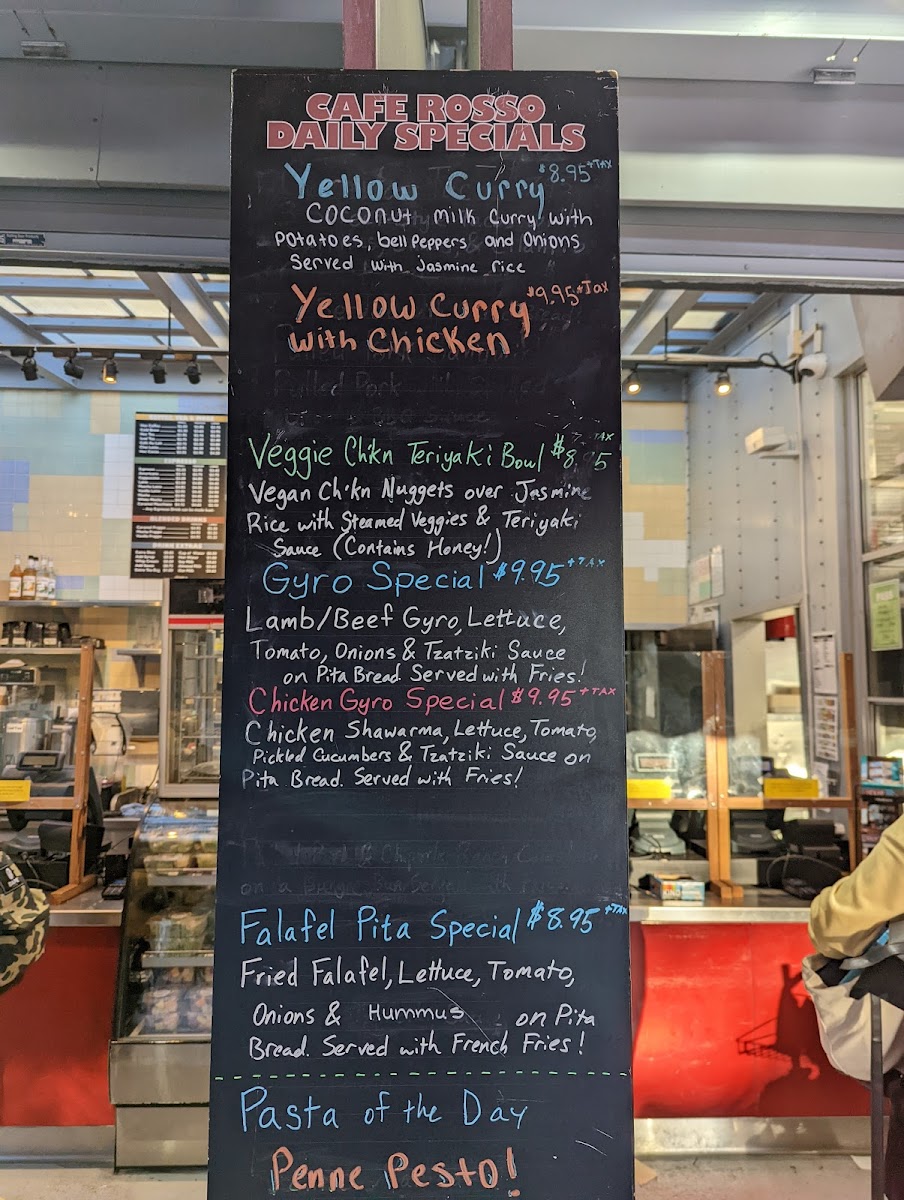 CAFE ROSSO
DAILY SPECIALS
Yellow Curry $8.95 +TAX
Coconut milk curry with
Potatoes, bell Peppers and Onions
Served with Jasmine rice
Yellow Curry $9.95 +Tax
with Chicken
Pulled Pork
Veggie Ch'kn Teriyaki Bowl TAX
Vegan Ch'kn Nuggets over Jasmine
Rice with Steamed Veggies & Teriyaki
Sauce (Contains Honey!)
Gyro Special $9.95 +TAX
Lamb/Beef Gyro, Lettuce,
Tomato, Onions & Tzatziki Sauce
on Pita Bread. Served with Fries!
Chicken Gyro Special $9.95 +TAX
Chicken Shawarma, Lettuce, Tomato,
Pickled Cucumbers & Tzatziki Sauce on
Pita Bread. Served with Fries!
Falafel Pita Special $8.95 +TAX
Fried Falafel, Lettuce, Tomato,
Onions & Hummus on Pita
Bread. Served with French Fries!
Pasta of the Day
Penne Pesto!